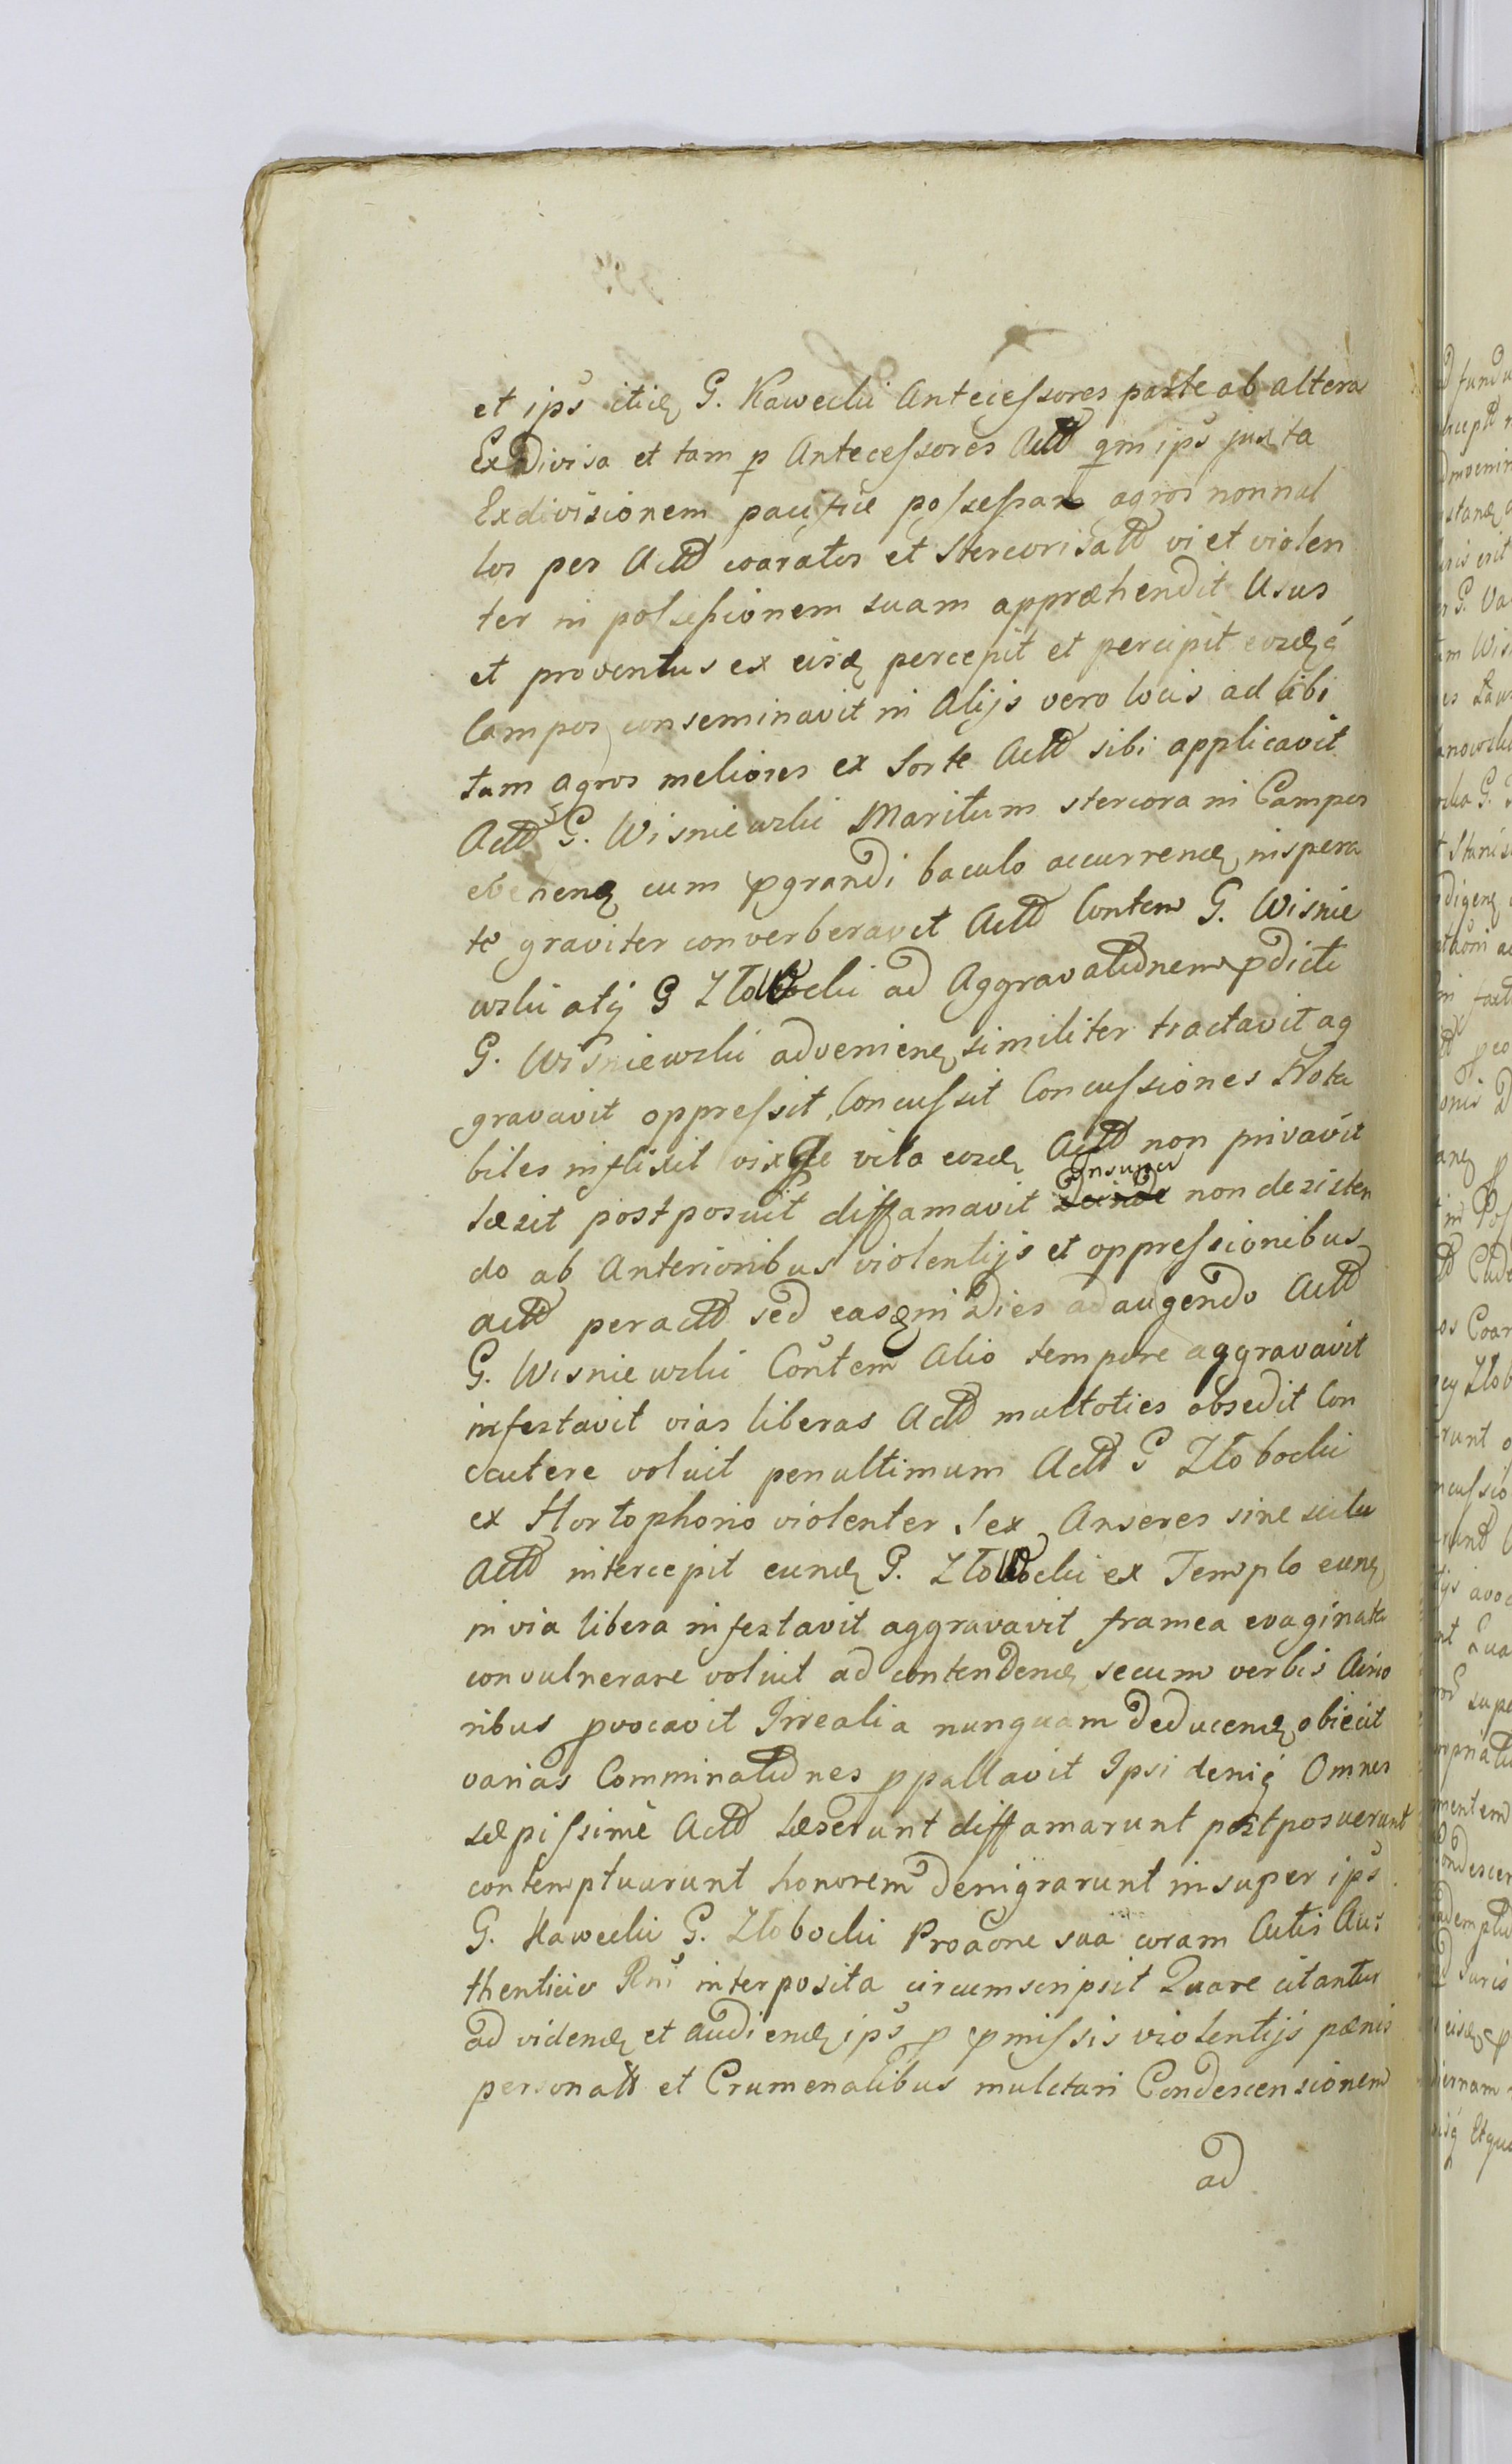 et ips itid G. Kawecki Antecessores parte ab altera
Exdivisa et tam p Antecessores Actt qm ips juxta
Exdivisionem pacifice possessam agros nonnul
los per Actt coaratos et stercorisatt vi et violen
ter in possessionem suam appræhendit Usus
et proventus ex eisd percepit et percipit eosdq
Campos conseminavit in Alijs vero locis ad libi
tum agros meliores ex sorte Actt sibi applicavit
Actt G. Wisniewski Maritum stercora in Campos
evehend cum pgrandi baculo accurrend inspera
te graviter converberavit Actt Contem G. Wisnie
wski atq G Złobocki ad Aggravationem pdicti
G. Wisniewski adveniend similiter tractavit ag
gravavit oppressit Concussit Concussiones Nota
biles inflixit vixqe vita eosd Actt non privavit
læsit postposuit diffamavit insuper non desisten
do ab Anterioribus violentijs et oppressionibus
actt peractt sed easdm in dies adaugendo Actt
G. Wisniewski Contem Alio tempore aggravavit
infestavit vias liberas Actt multoties obsedit Con
ccutere voluit penultimum Actt G Złobocki
ex Hortophorio violenter sex Anseres sine scitu
Actt intercepit eund G. Złobocki ex Templo eund
in via libera infestavit aggravavit framea evaginata
convulnerare voluit ad contendend secum verbis Acrio
ribus pvocavit Irrealia nunquam deducend obiecit
varias Comminationes ppallavit Ipsi deniq Omnes
sæpissimè Actt læserunt diffamarunt postposuerunt
contemptuarunt honorem denigrarunt insuper ips
G. Kawecki G. Złobocki Proaone sua coram Actis Au:
thenticis Rni interposita circumscripsit Quare citantur
ad videnđ et audiend ips p pmissis violentijs pænis
personatt et Crumenalibus mulctari Condescensionem
ad